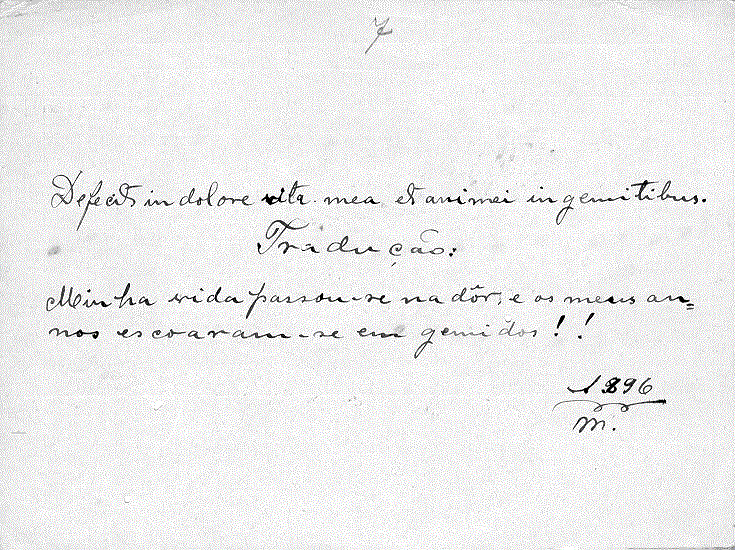 7
Defecit in dolore vita mea et animei in gemitibus.
Traducção:
Minha vida passou-se na dôr, e os meus an=
nos escoaram-se em gemidos!!
1896
M.